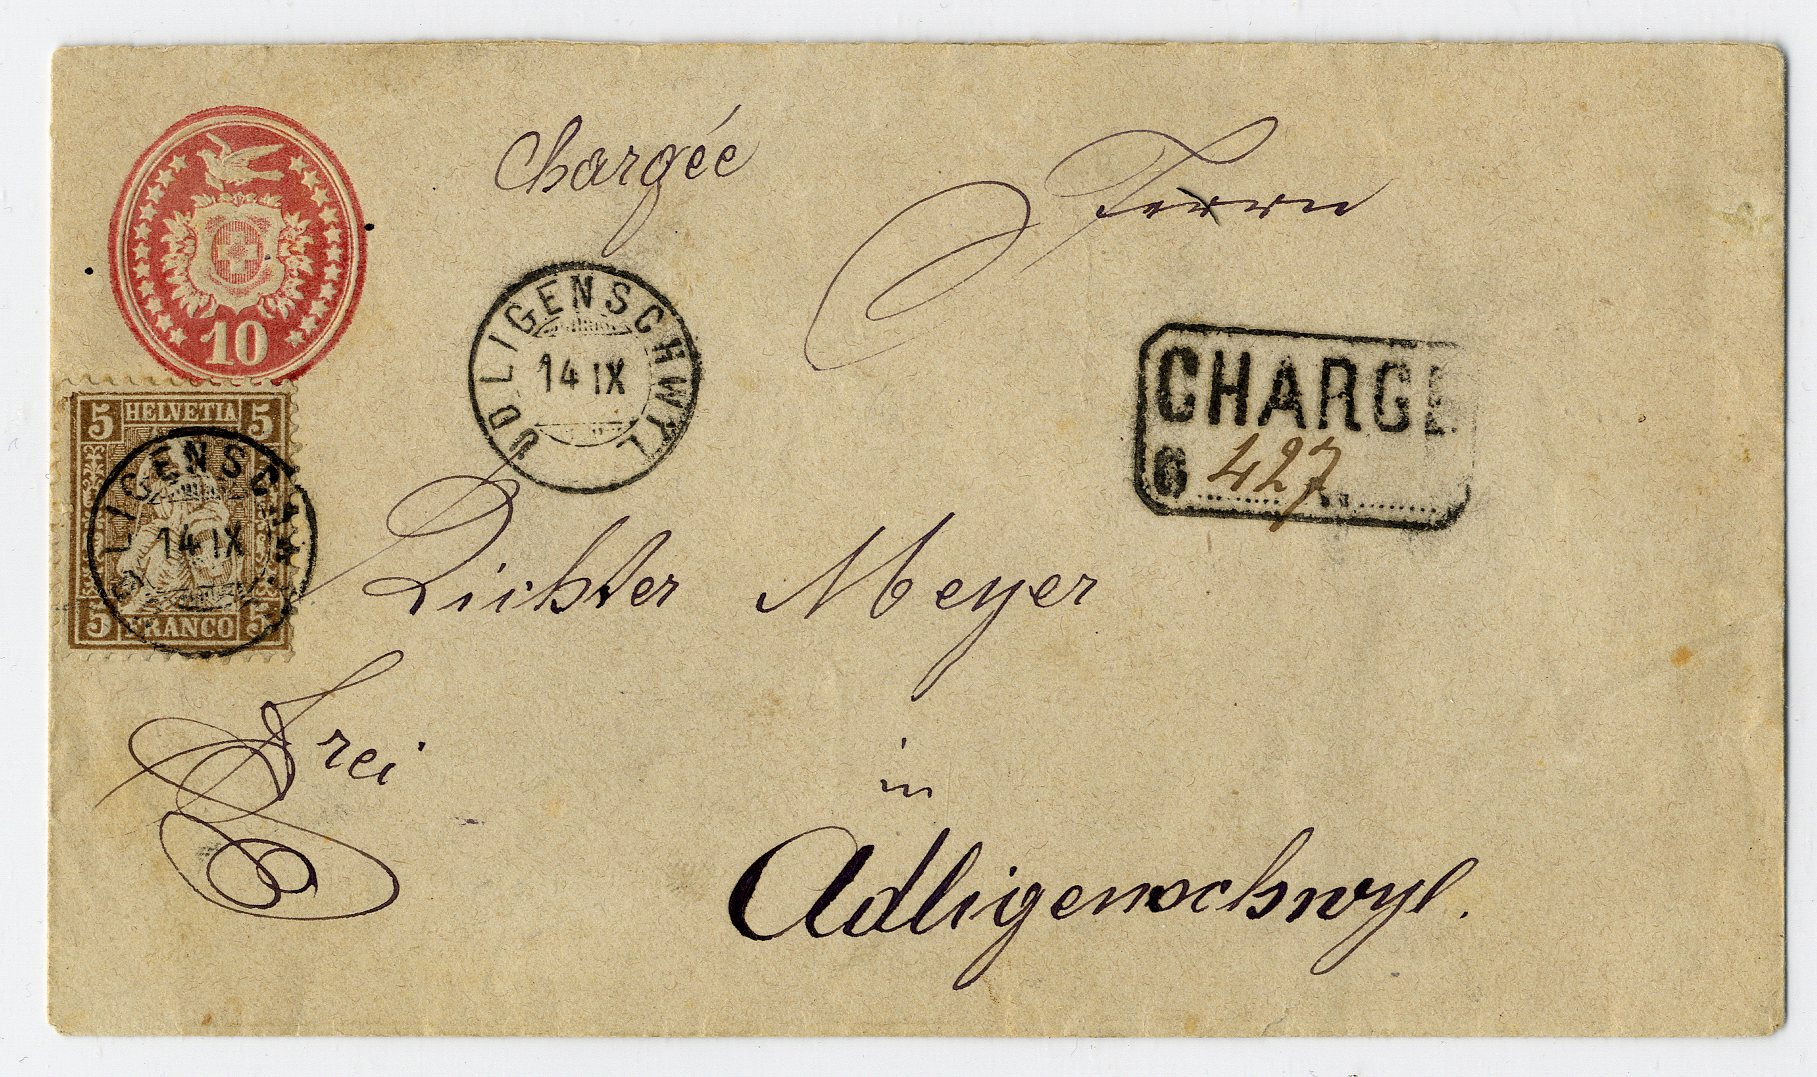 Chargée
Herrn
10
UDLIGENSCHWYL
14 IX
CHARGE
6 427
5 HELVETIA 5
LIGENSCHW
14 IX
5 FRANCO 5
Richter Meyer
Frei
in
Adligenschwyl.